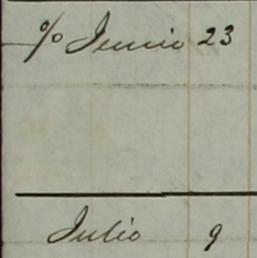 % Junio 23
Julio 9